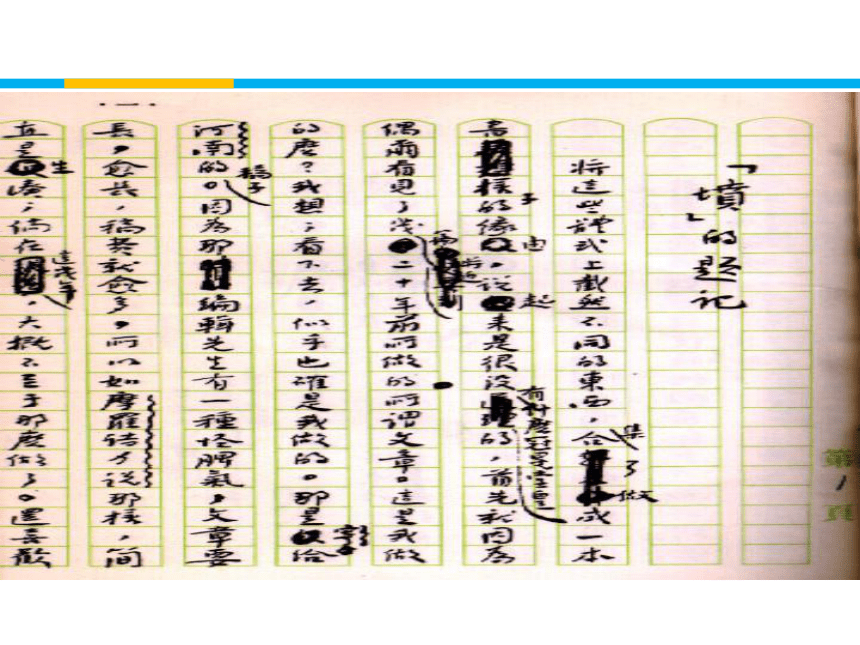 「墳」的題記
將這些體式上截然不同的東西,合集了做成一本
書樣子的緣由,說起來是很沒有什麼冠冕堂皇的,首先就因為
偶爾看見了幾篇將近二十年前所做的所謂文章。這是我做
的麼?我想,看下去,似乎也確是我做的。那是寄給
河南的稿子。因為那編輯先生有一種怪脾氣,文章要
長,愈長,稿費就愈多。所以如摩羅詩力說那樣,簡
直是生湊;倘在這幾年,大概不至于那麼做了。還喜歡
第1頁